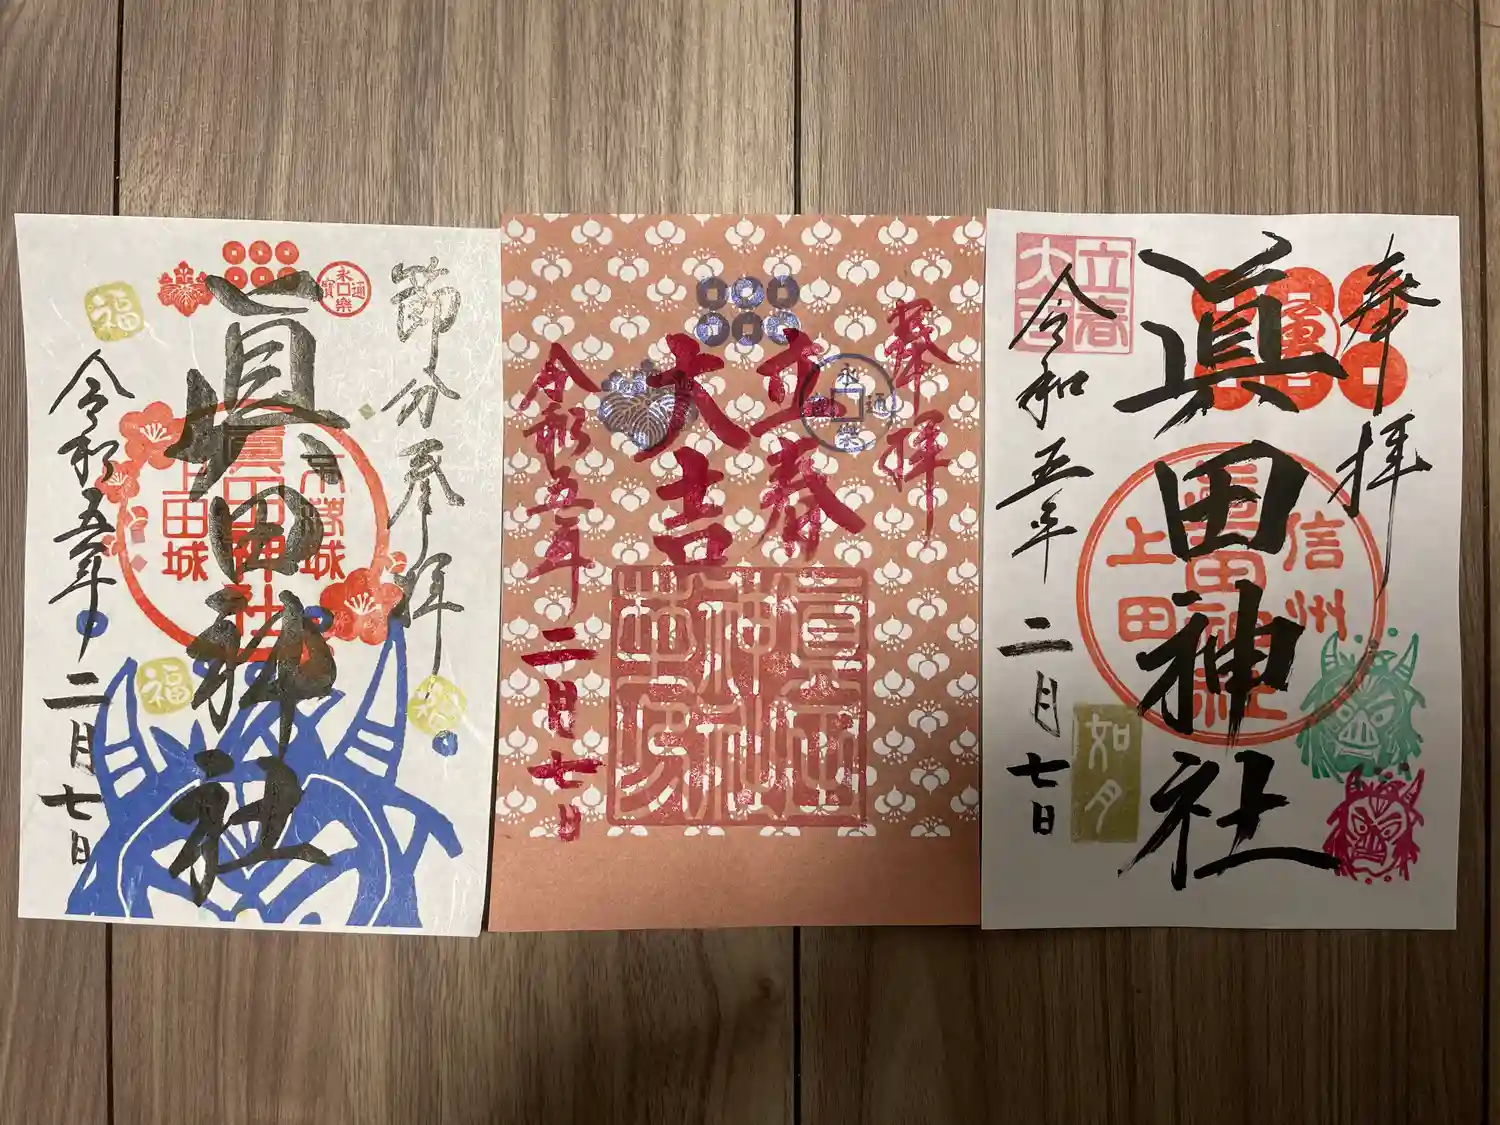 節分参拝
眞田神社
令和五年
二月七日
福
福
福
永楽通寳
不落城
眞田神社
上田城
奉拝
立春
大吉
令和五年
二月七日
永楽通
眞田
神社
奉拝
眞田神社
令和五年
二月七日
立春
大吉
信州
眞田神社
上田
如月